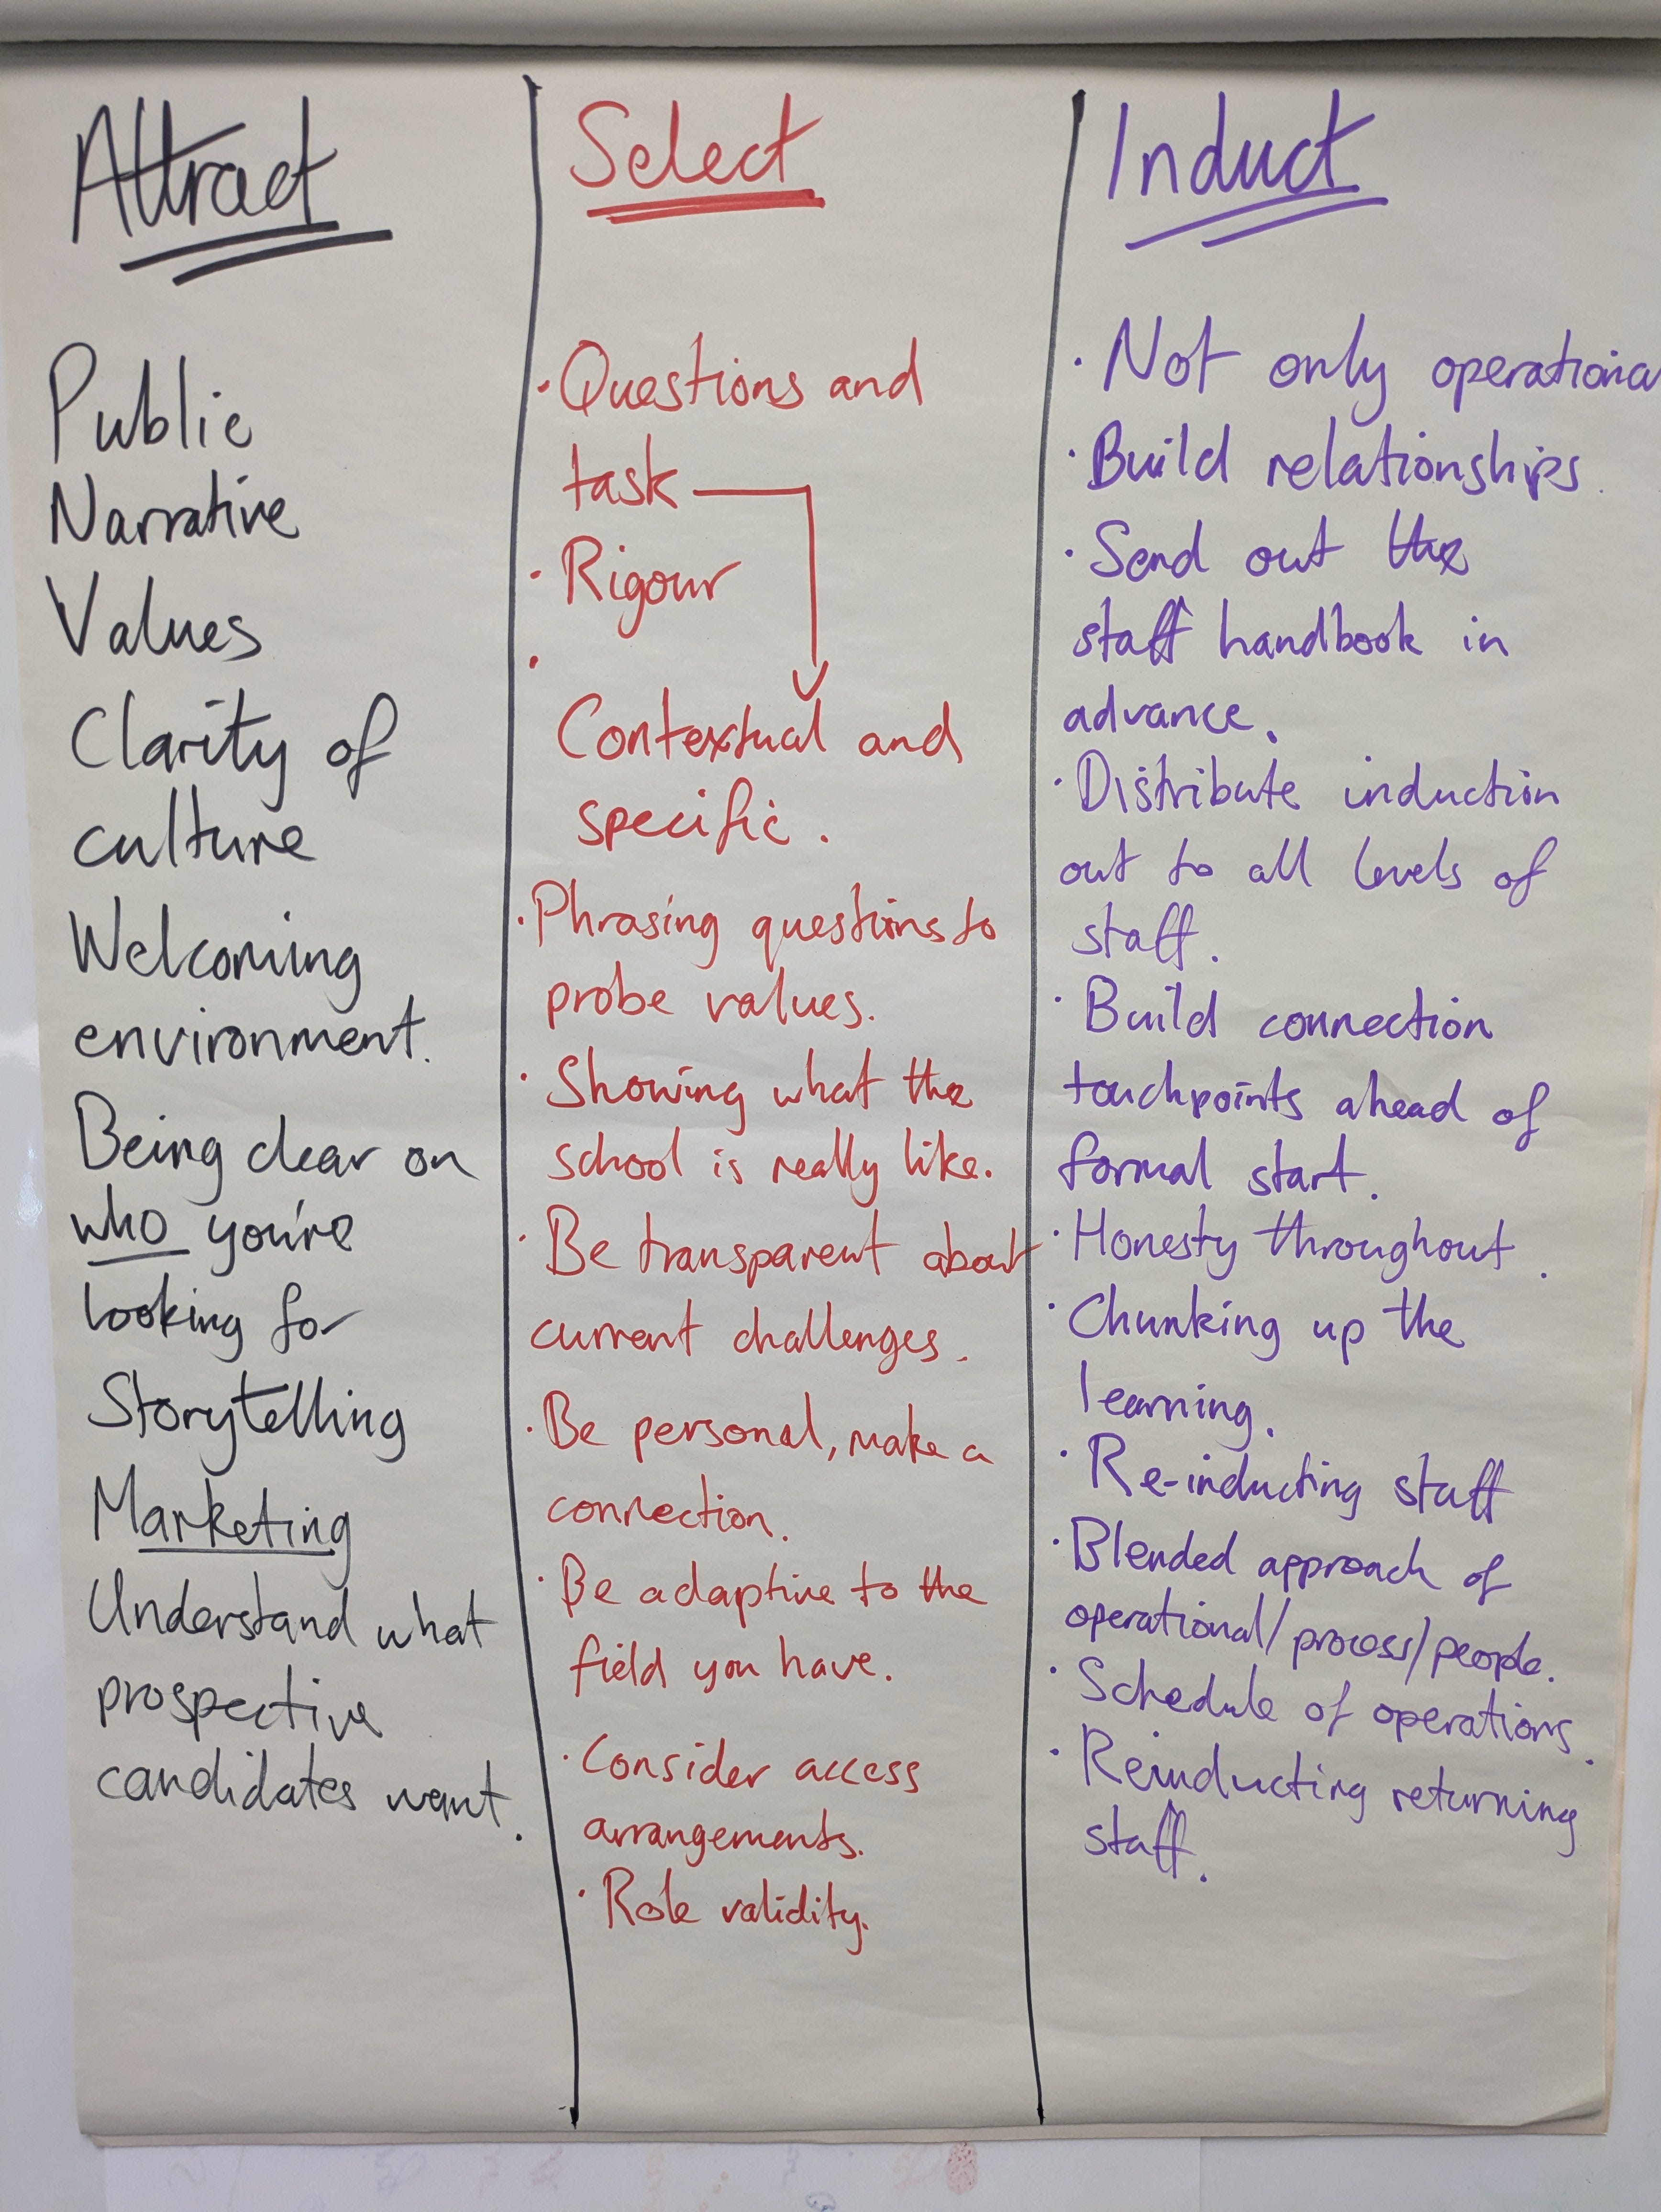 Attract
Public
Narrative
Values
Clarity of
culture
Welcoming
environment.
Being clear on
who you're
looking for
Storytelling
Marketing
Understand what
prospective
candidates want.
Select
· Questions and
task
· Rigour
·
Contextual and
specific.
· Phrasing questions to
probe values.
· Showing what the
school is really like.
· Be transparent about
current challenges.
· Be personal, make a
connection.
· Be adaptive to the
field you have.
· Consider access
arrangements.
· Role validity.
Induct
· Not only operationa
· Build relationships.
· Send out the
staff handbook in
advance.
· Distribute induction
out to all levels of
staff.
· Build connection
touchpoints ahead of
formal start.
· Honesty throughout.
· Chunking up the
learning.
· Re-inducting staff
· Blended approach of
operational/process/people.
· Schedule of operations.
· Reinducting returning
staff.